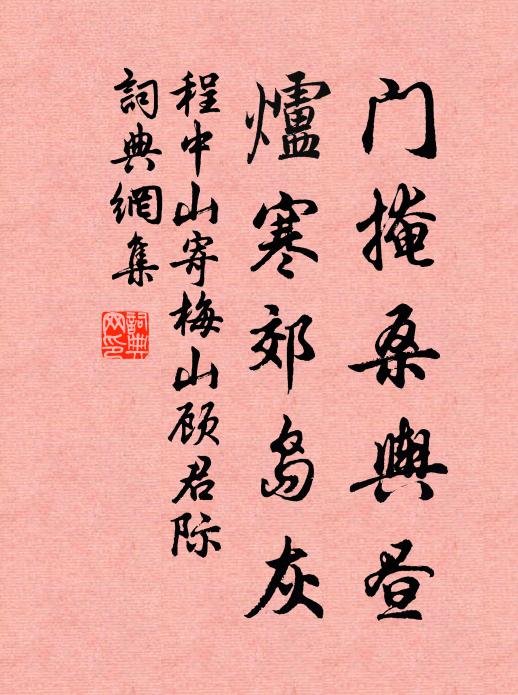 门掩桑舆昼
爐寒郊岛灰
程中山寄梅山顾君际
詞典網集
詞典网印